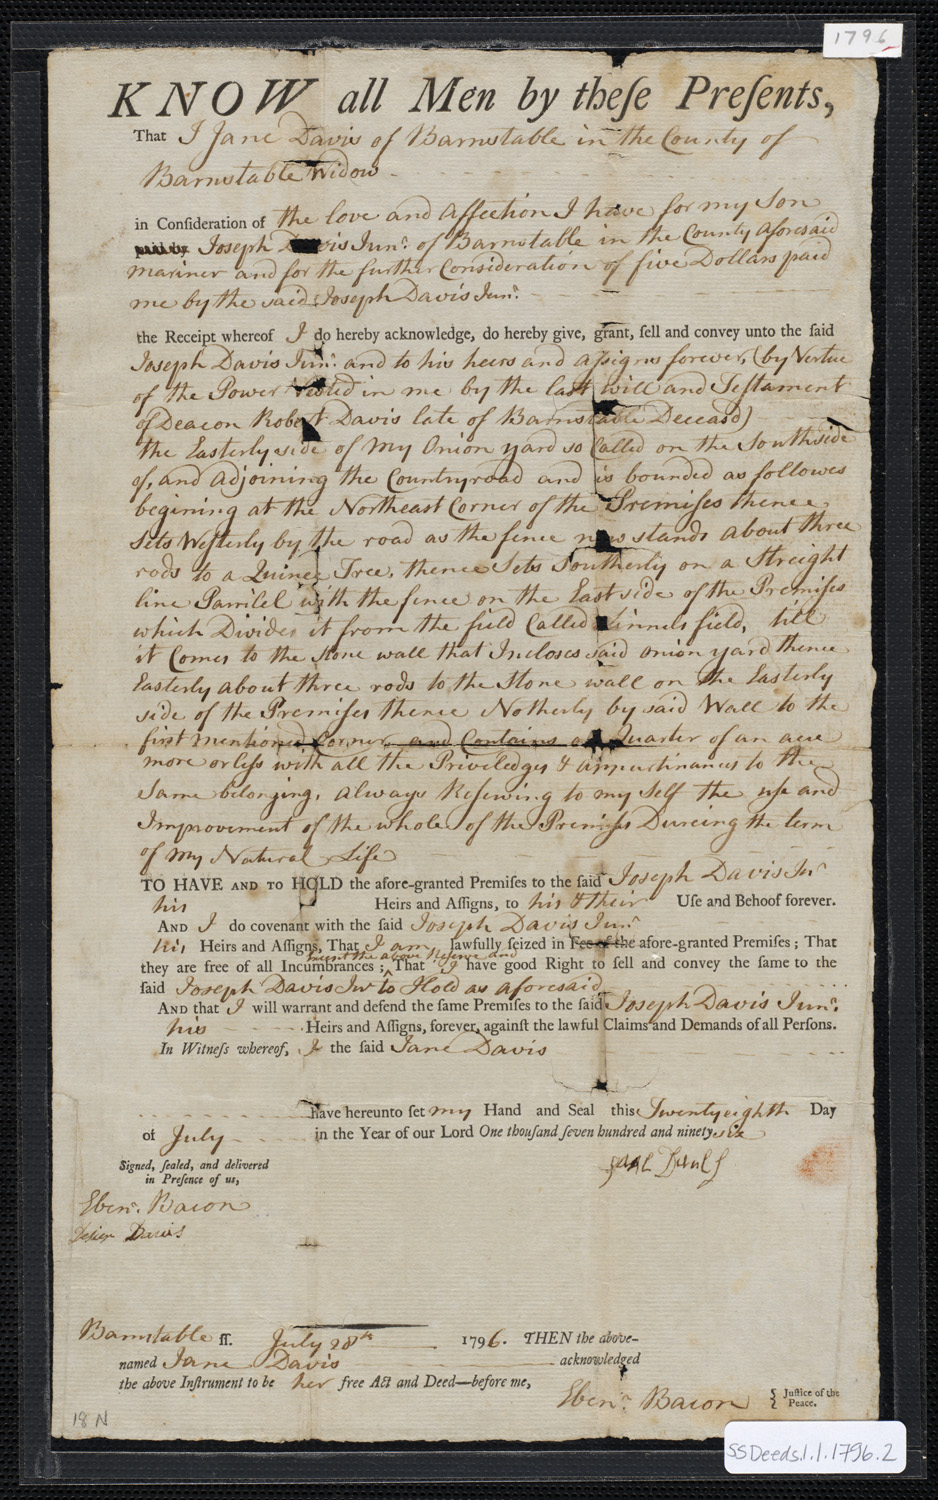 1796
KNOW all Men by theſe Preſents,
That I Jane Davis of Barnstable in the County of
Barnstable Widow
in Conſideration of the love and affection I have for my Son
Joseph Davis Junr. of Barnstable in the County aforesaid
mariner and for the further Consideration of five Dollars paid
me by the said Joseph Davis Junr.
the Receipt whereof I do hereby acknowledge, do hereby give, grant, ſell and convey unto the ſaid
Joseph Davis Junr. and to his heers and aſsigns forever (by Vertue
of the Power Vested in me by the last will and Testament
of Deacon Robert Davis late of Barnstable Deceasd)
the Easterly side of my Onion yard so Called on the Southside
of, and adjoining the Countyroad and is bounded as followes
begining at the Northeast Corner of the Premiſses thence
Sets Westerly by the road as the fence now stands about three
rods to a Quince Tree, thence Sets Southerly on a Streight
line Parrilel with the fence on the East side of the Premiſses
which Divides it from the field Called Linnels field, till
it Comes to the stone wall that Incloses said onion yard thence
Easterly about three rods to the stone wall on the Easterly
side of the Premiſses thence Notherly by said Wall to the
first mentioned Corner and Contains one Quarter of an acre
more or leſs with all the Priviledges & appurtinances to the
Same belonging, always Reserving to my self the use and
Improvement of the whole of the Premiſses Dureing the term
of my Natural Life
TO HAVE AND TO HOLD the afore-granted Premiſes to the ſaid Joseph Davis Jnr
his Heirs and Aſſigns, to his & their Uſe and Behoof forever.
AND I do covenant with the ſaid Joseph Davis Junr
his Heirs and Aſſigns, That I am lawfully ſeized in Fee of the afore-granted Premiſes; That
the above Reserve and
they are free of all Incumbrances; That I have good Right to ſell and convey the ſame to the
ſaid Joseph Davis Jnr to Hold as aforesaid
AND that I will warrant and defend the ſame Premiſes to the ſaid Joseph Davis Junr.
his Heirs and Aſſigns, forever, againſt the lawful Claims and Demands of all Perſons.
In Witneſs whereof, I the ſaid Jane Davis
have hereunto ſet my Hand and Seal this Twenty eighth Day
of July in the Year of our Lord One thouſand ſeven hundred and ninety six
Signed, ſealed, and delivered
in Preſence of us,
Jane Davis
Ebenr. Bacon
Davis
Barnstable ſſ. July 28th 1796. THEN the above-
named Jane Davis acknowledged
the above Inſtrument to be her free Act and Deed—before me,
Ebenr. Bacon { Juſtice of the
Peace.
18 N
SSDeeds.1.1.1796.2